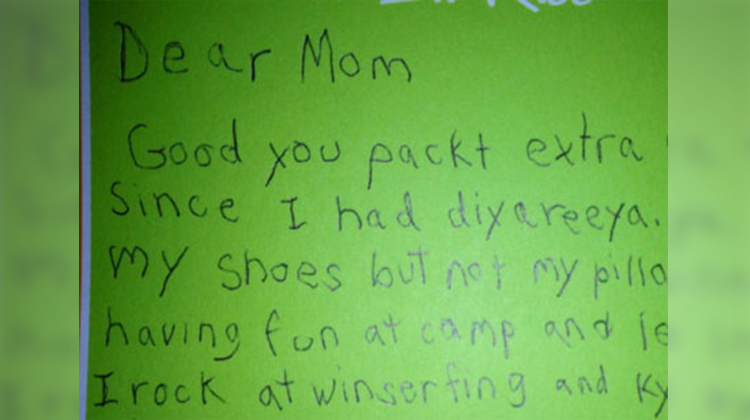 Dear Mom
Good you packt extra
Since I had diyareeya.
my shoes but not my
having fun at camp and
I rock at winserfing and